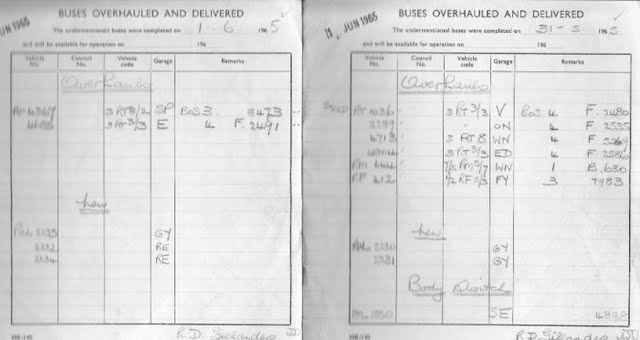 JUN 1965
BUSES OVERHAULED AND DELIVERED
The undermentioned buses were completed on 1-6- 1965
and will be available for operation on 196
Vehicle No. Council No. Vehicle code Garage Remarks
Overhauls
3 RT 8/2 SP BoS 3. 8473
3 RT 3/3 E 4 F. 2491
new
2233 GY
2232 RE
2234 RE
R.D. Gillanders
1 JUN 1965
BUSES OVERHAULED AND DELIVERED
The undermentioned buses were completed on 31-5- 196
and will be available for operation on 196
Vehicle No. Council No. Vehicle code Garage Remarks
Overhauls
RT 1036 3 RT 3/3 V BoS. 4 F. 2480
ON 4 F. 2535
4713 3 RT 8 WN 4 F 5269
3 RT 3/3 ED 4 F 2586
RM 644 WN 1 B. 630
RF 412 1/2 RF 5/3 FY 3 7983
new
2230 GY
2231 GY
Body Switch
SE 4838
R.D. Gillanders